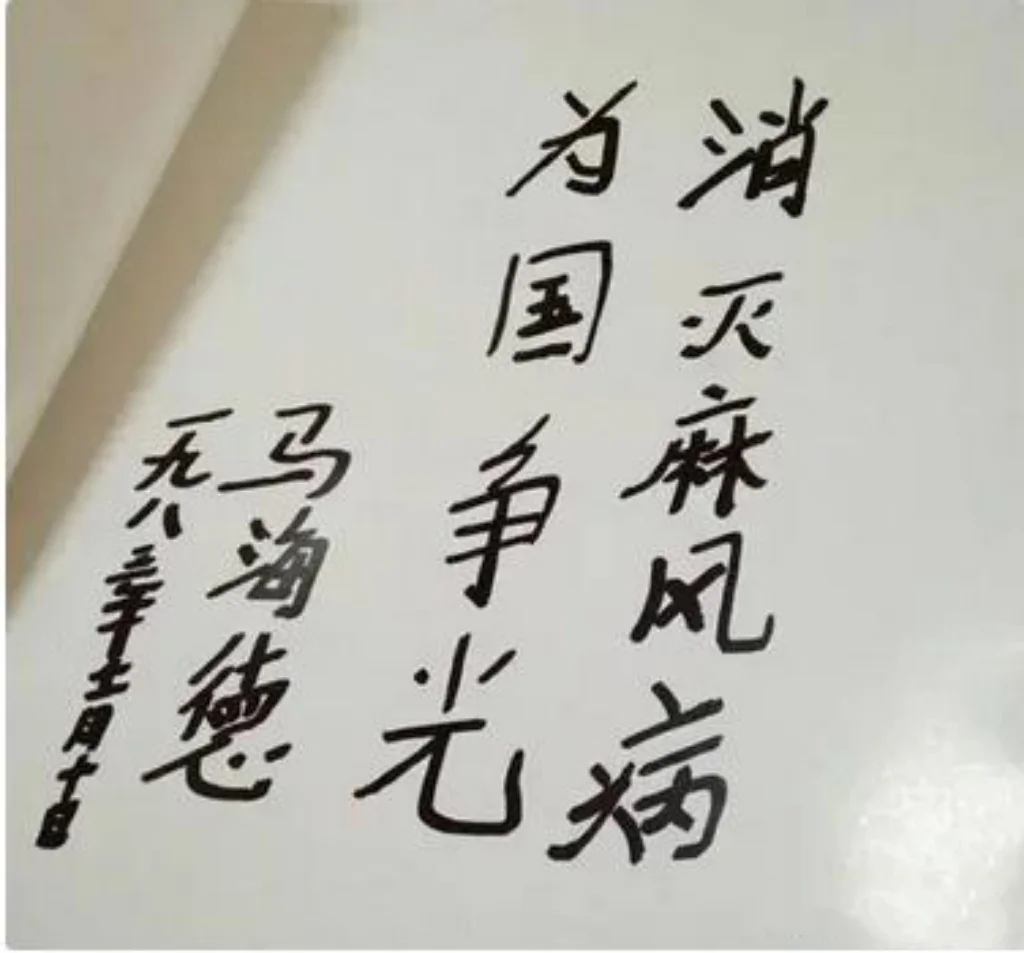 消灭麻风病
为国争光
马海德
一九八三年十一月十日